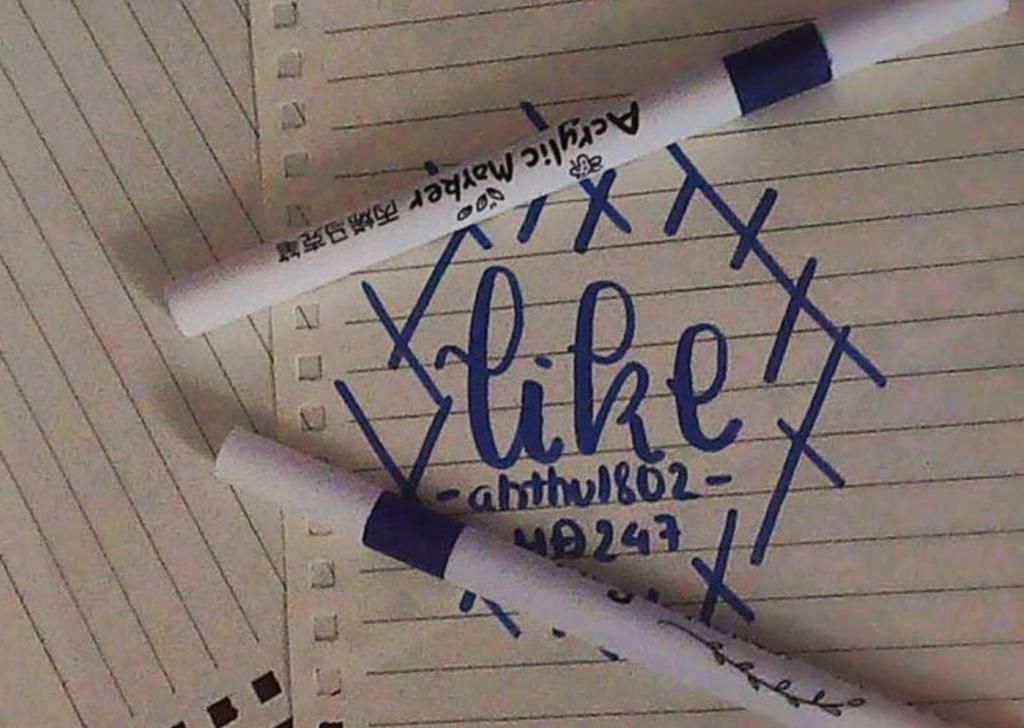 Acrylic Marker 丙烯马克笔
like
-ahthu1802-
HĐ247